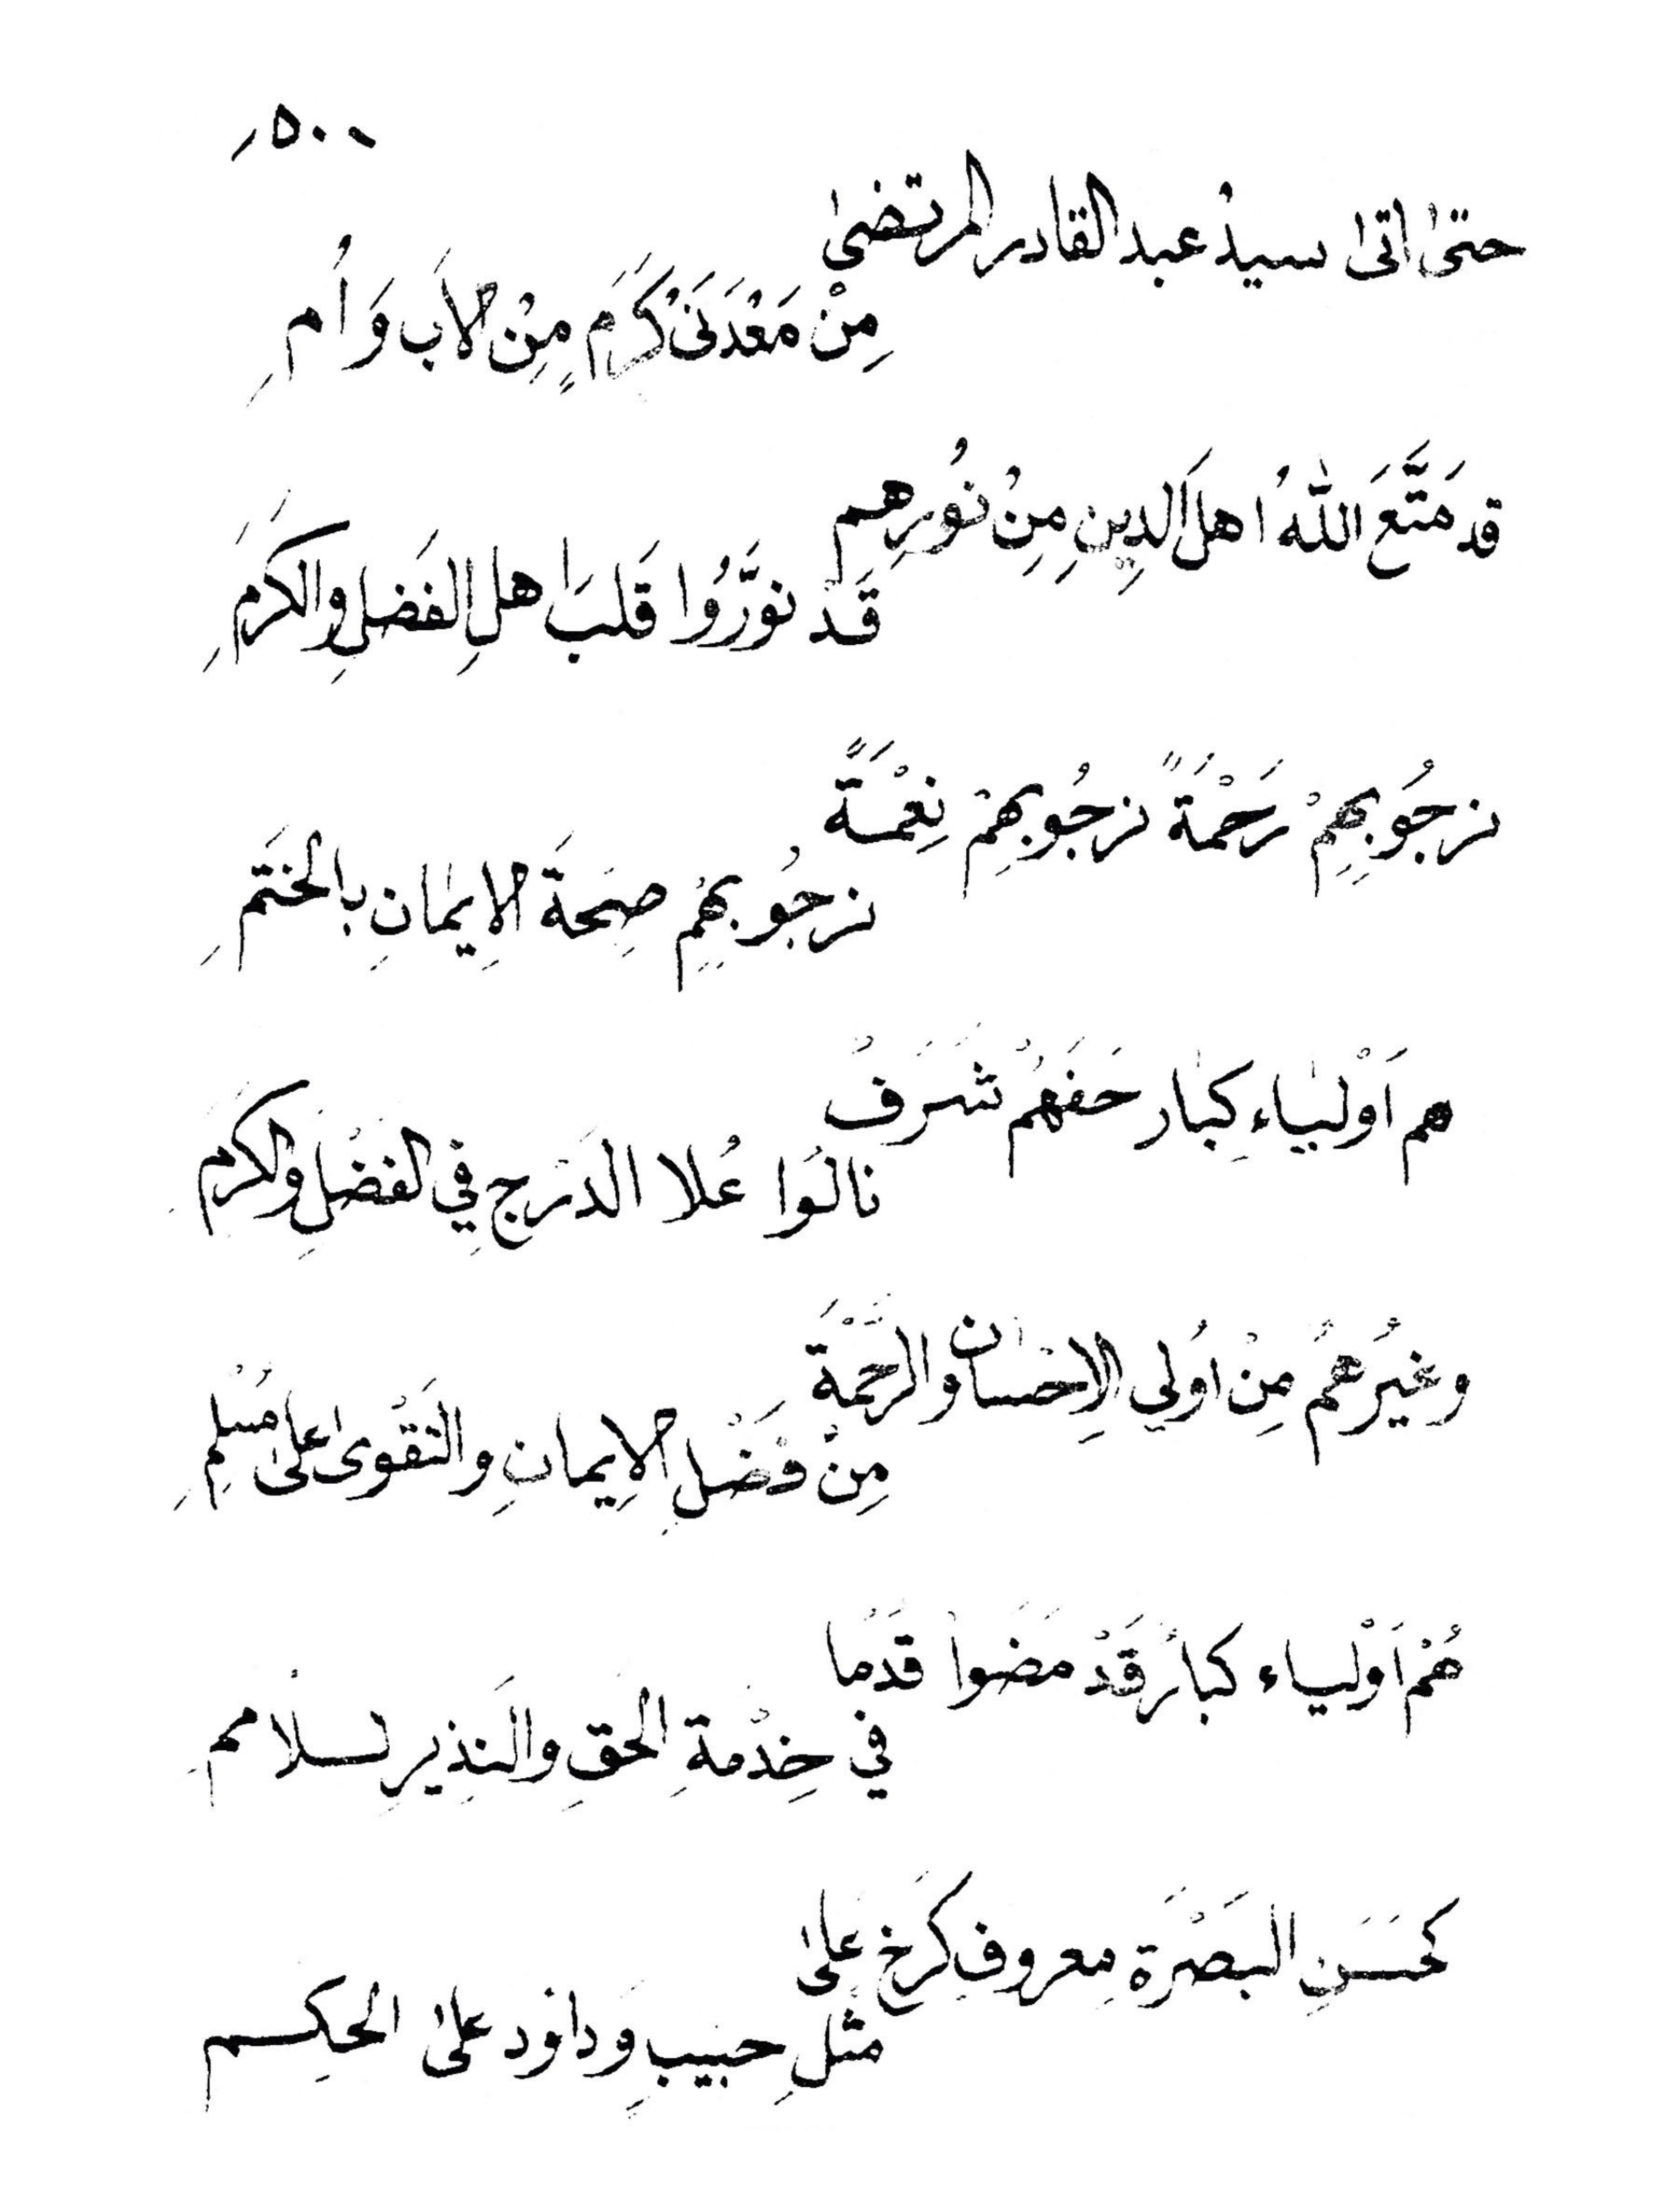 ٥٠٠
حتىٰ اتىٰ سيدُ عبد القادر المرتضىٰ
مِنْ مَعْدَنَىْ كَرَمٍ مِنْ الاَبِ وَ اُمِ
قد مَتَّعَ اللّٰهُ اهلَ الدِينِ مِنْ نُورِهِم
قَدْ نوَّرُوا قَلبَ اهلِ الفَضلِ والكَرَمِ
نرجُو بِهِمْ رَحْمَةً نرجُو بِهِمْ نِعْمَةً
نرجُو بِهِمْ صِحَةَ الاِيمٰانِ بالختَمِ
هم اَوْليٰاءِ كِبٰار حَفَهُمْ شَرَفُ
نالوُا عُلا الدَرَجِ فِي الفَضْلِ والكرَمِ
وغيُرهُمْ مِنْ اوُلي الاِحْسٰان والرَحْمَةَ
مِنْ فَضْلِ الاِيمانِ والتَقْوىٰ علىٰ مُسْلِمِ
هُمْ اَوْلياء كبارُ قَدْ مَضَوا قدَمْا
في خِدْمةِ الحَقِ والنَذِيرِ لسلاٰمِمِ
كحَسَنِ البَصْرَةِ مِعروفِ كَرَخِ عَلىٰ
مثْلِ حبيبِ وَداوُد علىٰ الحكِم